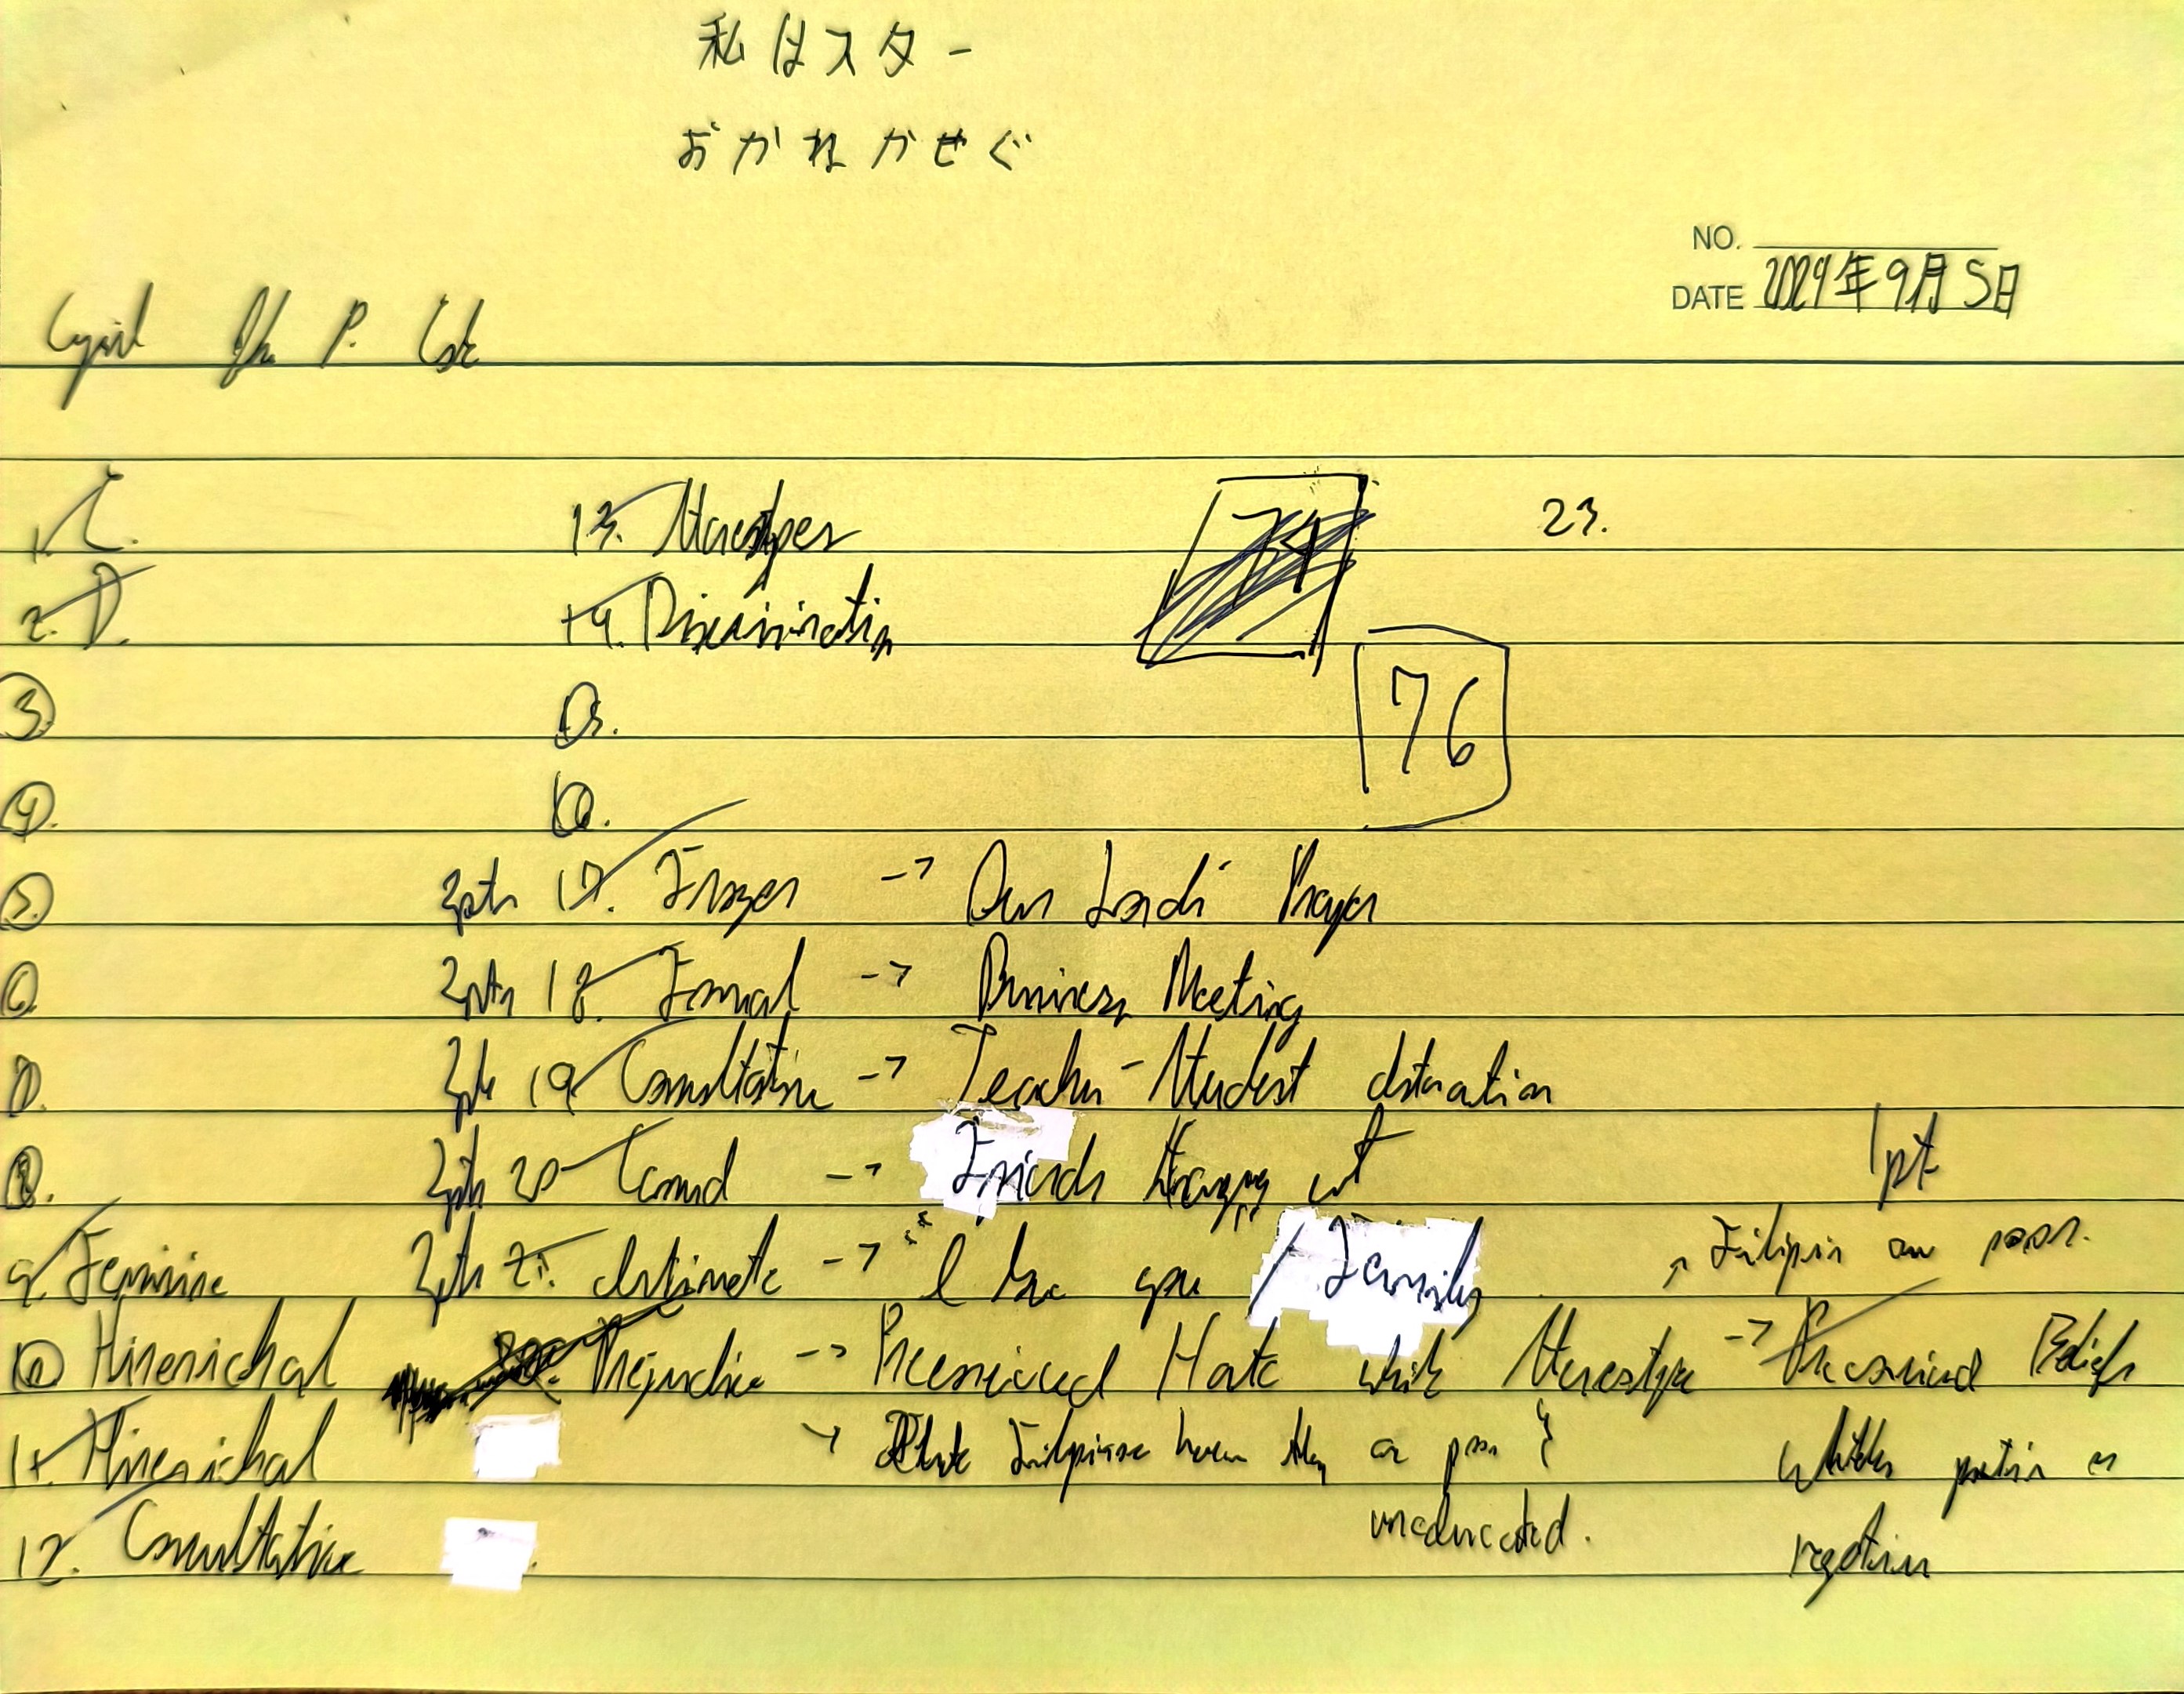 私はスター
おかねかせぐ
NO.
DATE 2024年9月5日
Cyril P.
1. C.
2. D.
3.
4.
5.
6.
7.
8.
9. Feminine
10. Hirerichal
11. Hirerichal
12. Consultative
13. Stereotypes
14. Discrimination
15.
16.
2pts 17. Frozen -> Our Lord's Prayer
2pts 18. Formal -> Business Meeting
2pts 19. Consultative -> Teacher-Student
2pts 20. Casual -> Friends Hanging out
2pts 21. Intimate -> "I love you / Family
Prejudice -> Preconceived Hate while Stereotype -> Preconceived Beliefs
-> Filipinos they are poor &
uneducated.
74
76
23.
1pt
Filipin are poor.